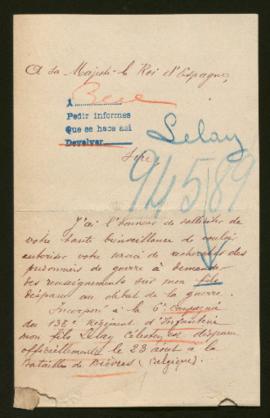 A Sa Majesté le Roi d'Espagne,
A
Pedir informes
Que se hace así
Devolver
Lelay
Sire,
94589
J'ai l'honneur de solliciter de
votre haute bienveillance de vouloir
autoriser votre service de recherches des
prisonniers de guerre à demander
des renseignements sur mon fils
disparu au début de la guerre.
Incorporé à la 6e Compagnie
du Régiment d'Infanterie
mon fils Lelay Célestin est disparu
officiellement le 23 août à la
Bataille de Bièvres (Belgique).